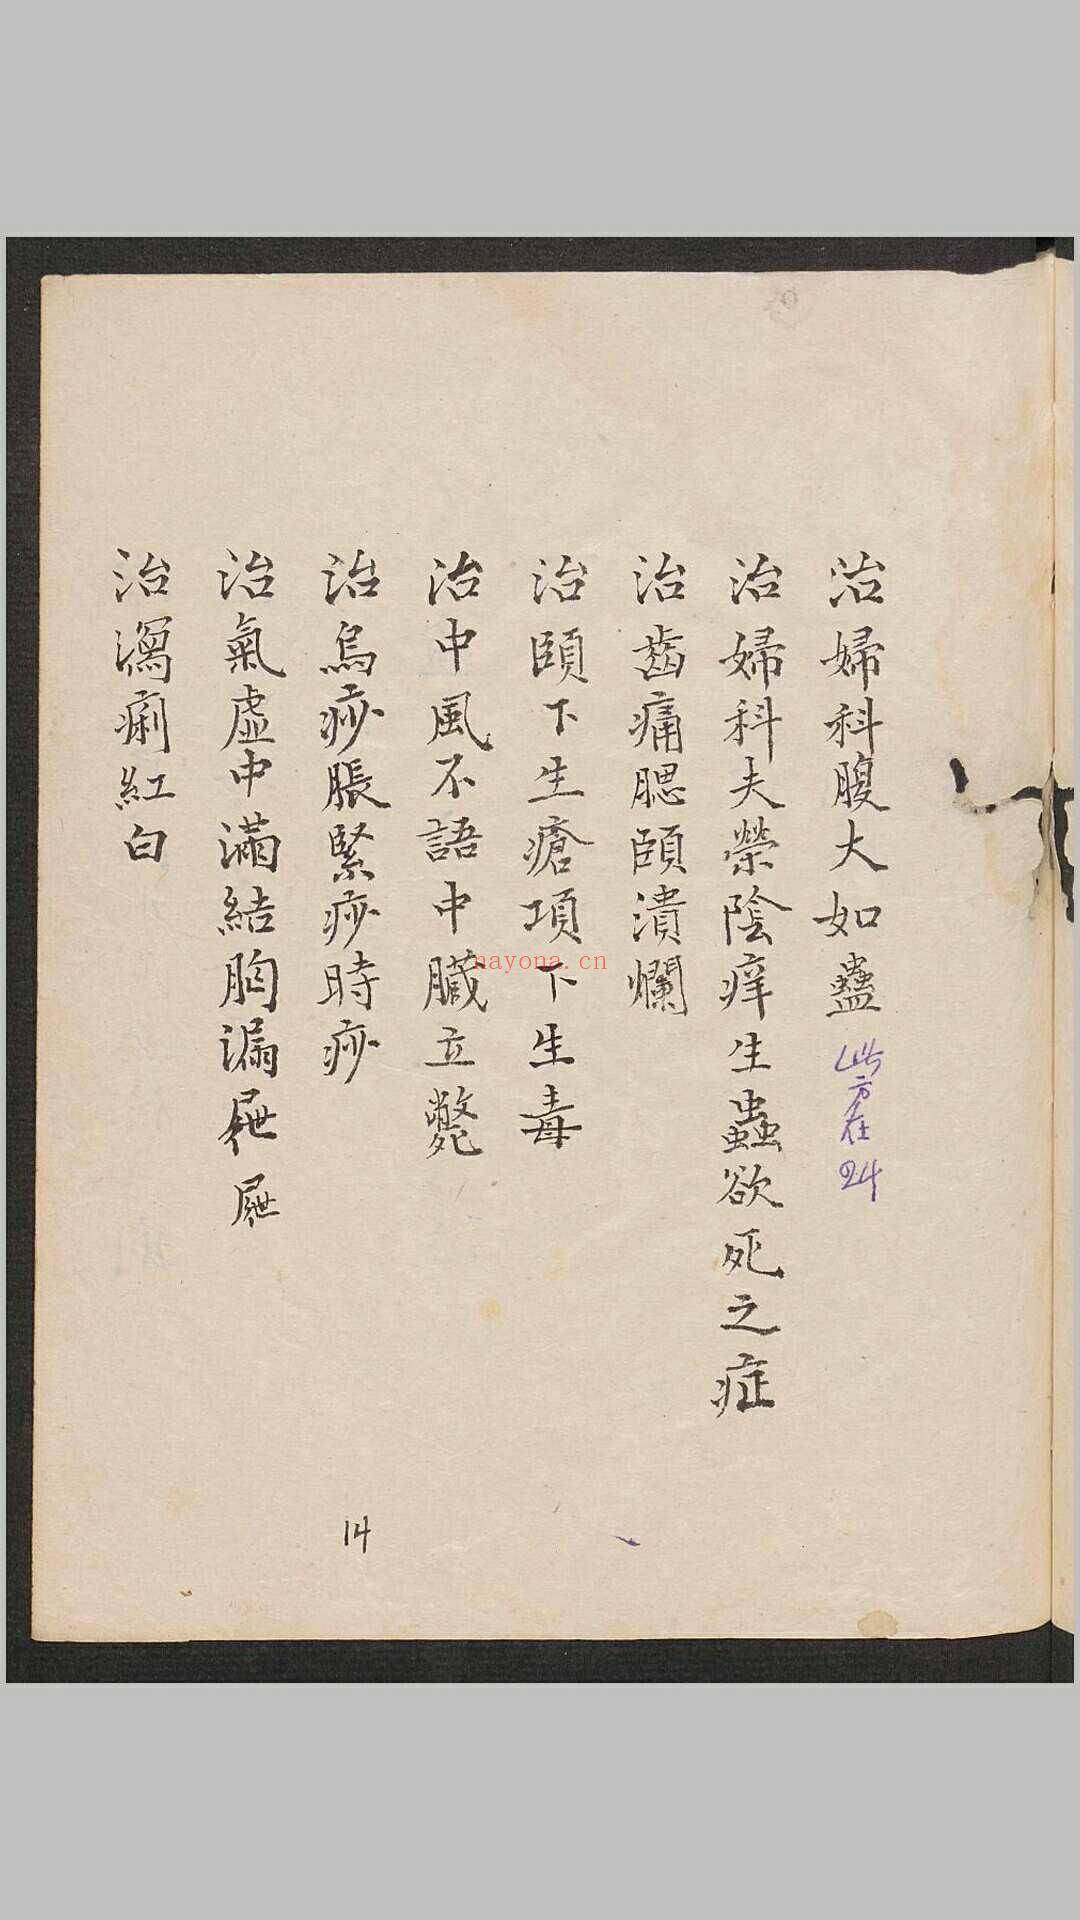 治婦科腹大如蠱 此方在24
治婦科夫榮陰痒生蟲欲死之症
治齒痛腮頤潰爛
治頤下生瘡項下生毒
治中風不語中臟立斃
治烏痧脹緊痧時痧
治氣虛中滿結胸漏
治瀉痢紅白
14
nayona.cn